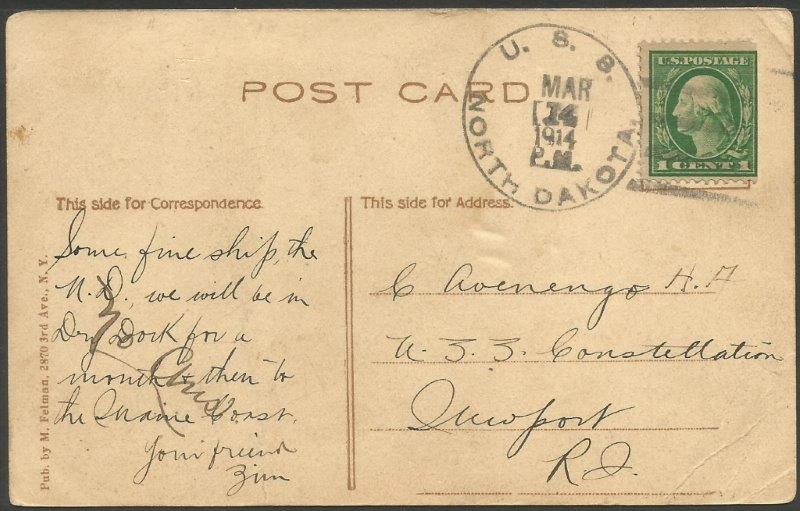 POST CARD
U. S. S.
NORTH DAKOTA.
MAR
14
1914
P.M.
U.S. POSTAGE
1 CENT 1
This side for Correspondence.
This side for Address.
Some fine ship, the
N.D., we will be in
Dry Dock for a
month & then to
the Maine Coast.
Your friend
Zim
C Avenengo H. A
U. S. S. Constellation
Newport
R. I.
Pub. by M. Felman, 2870 3rd Ave., N. Y.